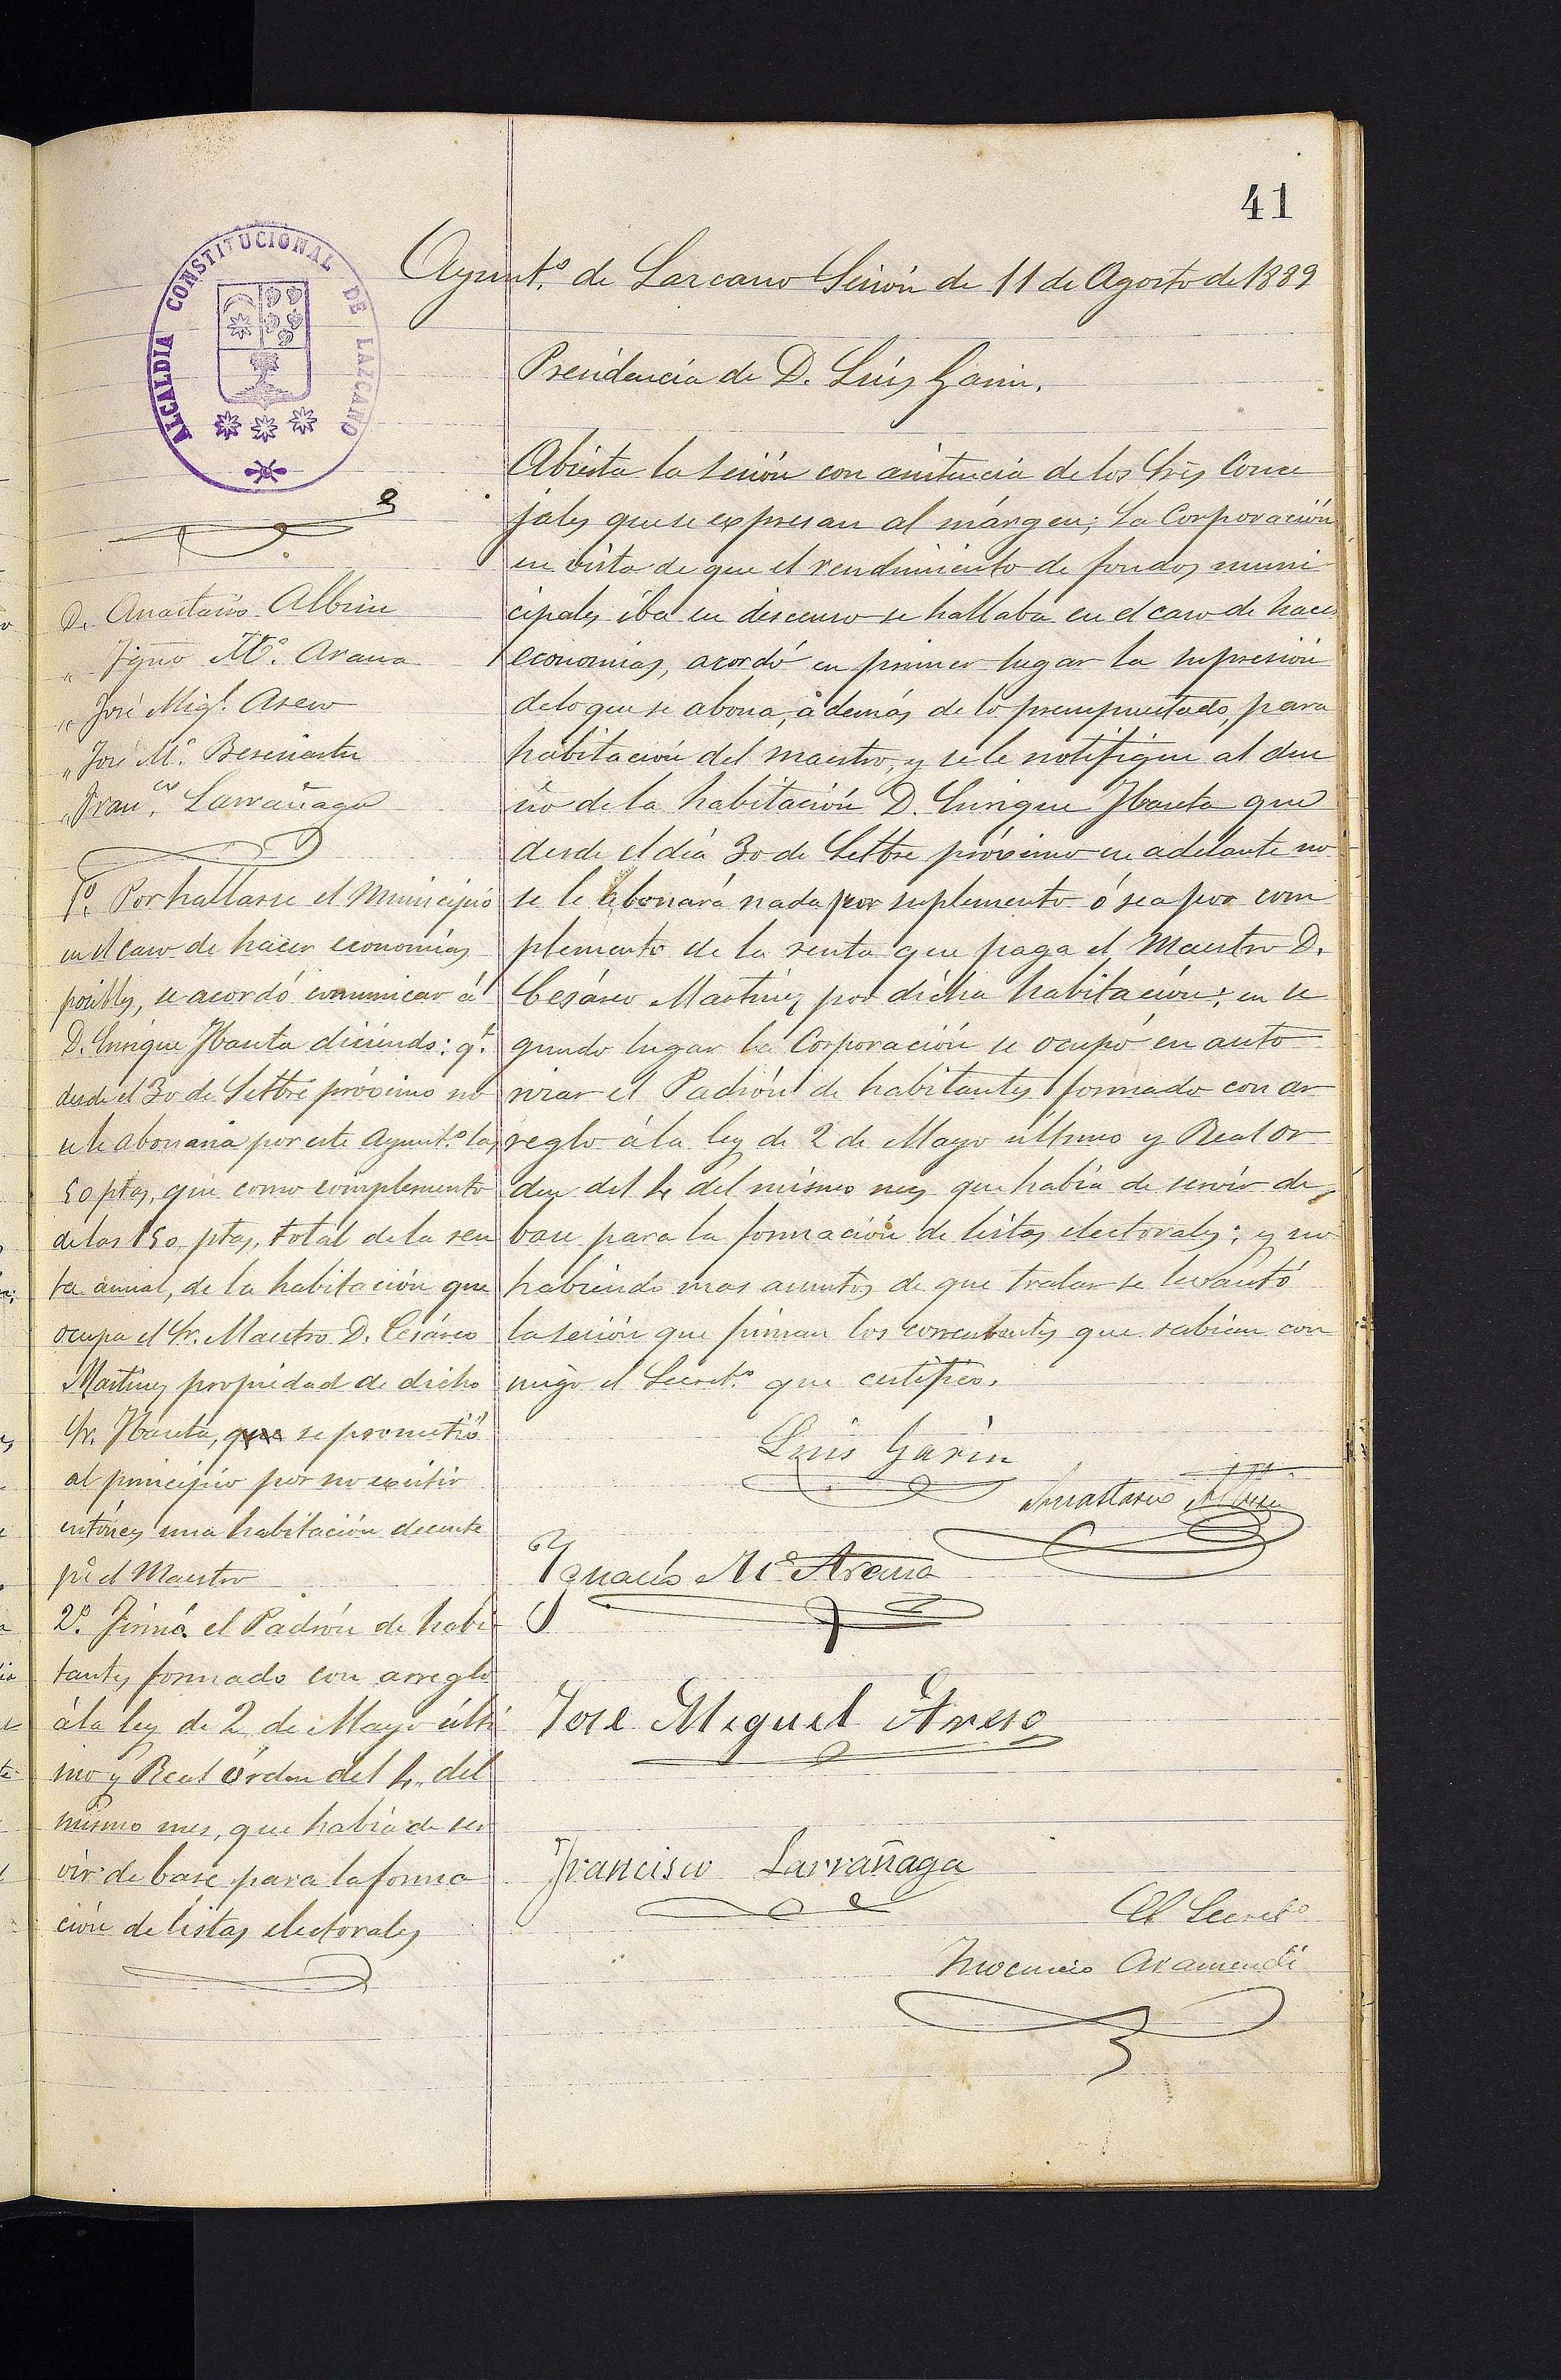 41
ALCALDIA CONSTITUCIONAL DE LAZCANO
Ayunt.º de Lazcano Sesión de 11 de Agosto de 1889
Presidencia de D. Luis Garin.
D. Anastasio Albisu
" Ygnº Mª. Arana
" José Migl. Areso
" José Mª. Beresiartu
" Francº. Larrañaga
1º. Por hallarse el Municipio
en el caso de hacer economias
posibles, se acordó comunicar á
D. Enrique Ybauta diciendo: qe.
desde el 30 de Setbre próximo no
se le abonaria por este Ayunt.º las
50 ptas, que como complemento
de las 150 ptas, total de la ren
ta anual, de la habitación que
ocupa el Sr. Maestro D. Cesáreo
Martinez propiedad de dicho
Sr. Ybauta, que se prometió
al principio por no existir
entónces una habitación decente
pª el Maestro
2º. Firmó el Padrón de habi
tantes formado con arreglo
á la ley de 2 de Mayo últi
mo y Real órden del 4, del
mismo mes, que habia de ser
vir de base para la forma
ción de listas electorales
Abierta la sesión con asistencia de los Sres Conce
jales que se expresan al márgen; La Corporación
en vista de que el rendimiento de fondos muni
cipales iba en descenso se hallaba en el caso de hacer
economias, acordó en primer lugar la supresión
de lo que se abona, además de lo presupuestado, para
habitación del maestro, y se le notifique al due
ño de la habitación D. Enrique Ybauta que
desde el día 30 de Setbre próximo en adelante no
se le abonará nada por suplemento ó sea por com
plemento de la renta que paga el Maestro D.
Cesáreo Martinez por dicha habitación; en se
gundo lugar la Corporación se ocupó en auto
rizar el Padrón de habitantes formado con ar
reglo á la ley de 2 de Mayo último y Real or
den del 4 del mismo mes que habia de servir de
base para la formación de listas electorales; y no
habiendo mas asuntos de que tratar se levantó
la sesión que firman los concurrentes que sabian con
migo el Secret.º que certifico.
Luis Garin
Anastasio Albisu
Ygnacio Mª Arana
Jose Miguel Areso
Francisco Larrañaga
El Secretº
Inocencio Aramendi